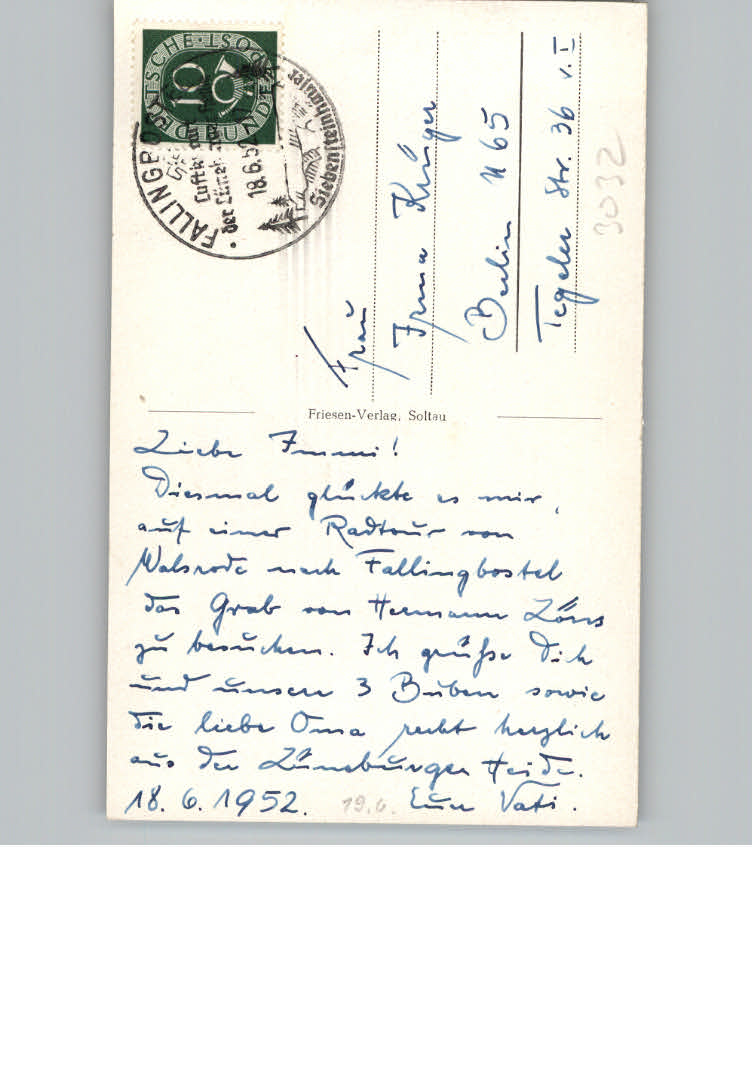 DEUTSCHE BUNDESPOST
10
FALLINGBOSTEL
Luftkurort
der Lüneburger
18.6.52
Siebensteinhäuser
Frau
Irma Krüger
Berlin N 65
Tegeler Str. 36 v. I
3032
Friesen-Verlag, Soltau
Liebe Immi!
Diesmal glückte es mir,
auf einer Radtour von
Walsrode nach Fallingbostel
das Grab von Hermann Löns
zu besuchen. Ich grüße Dich
und unsere 3 Buben sowie
die liebe Oma recht herzlich
aus der Lüneburger Heide.
18. 6. 1952. 19.6. Euer Vati.